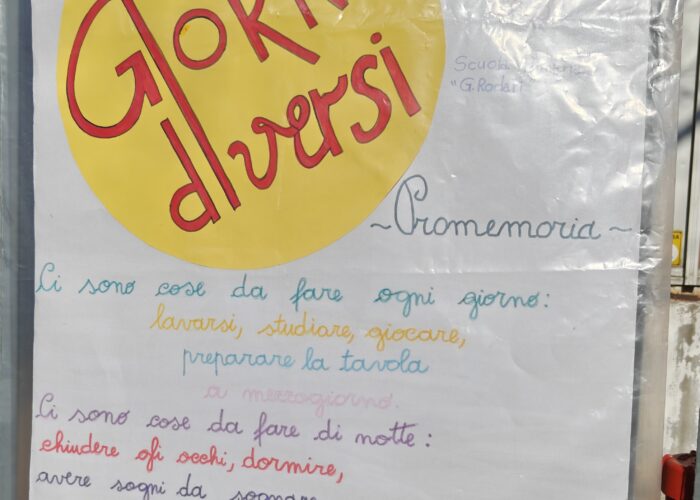 GIORN
diversi
Scuola
"G. Rodari"
~ Promemoria ~
Ci sono cose da fare ogni giorno:
lavarsi, studiare, giocare,
preparare la tavola
a mezzogiorno.
Ci sono cose da fare di notte:
chiudere gli occhi, dormire,
avere sogni da sognare